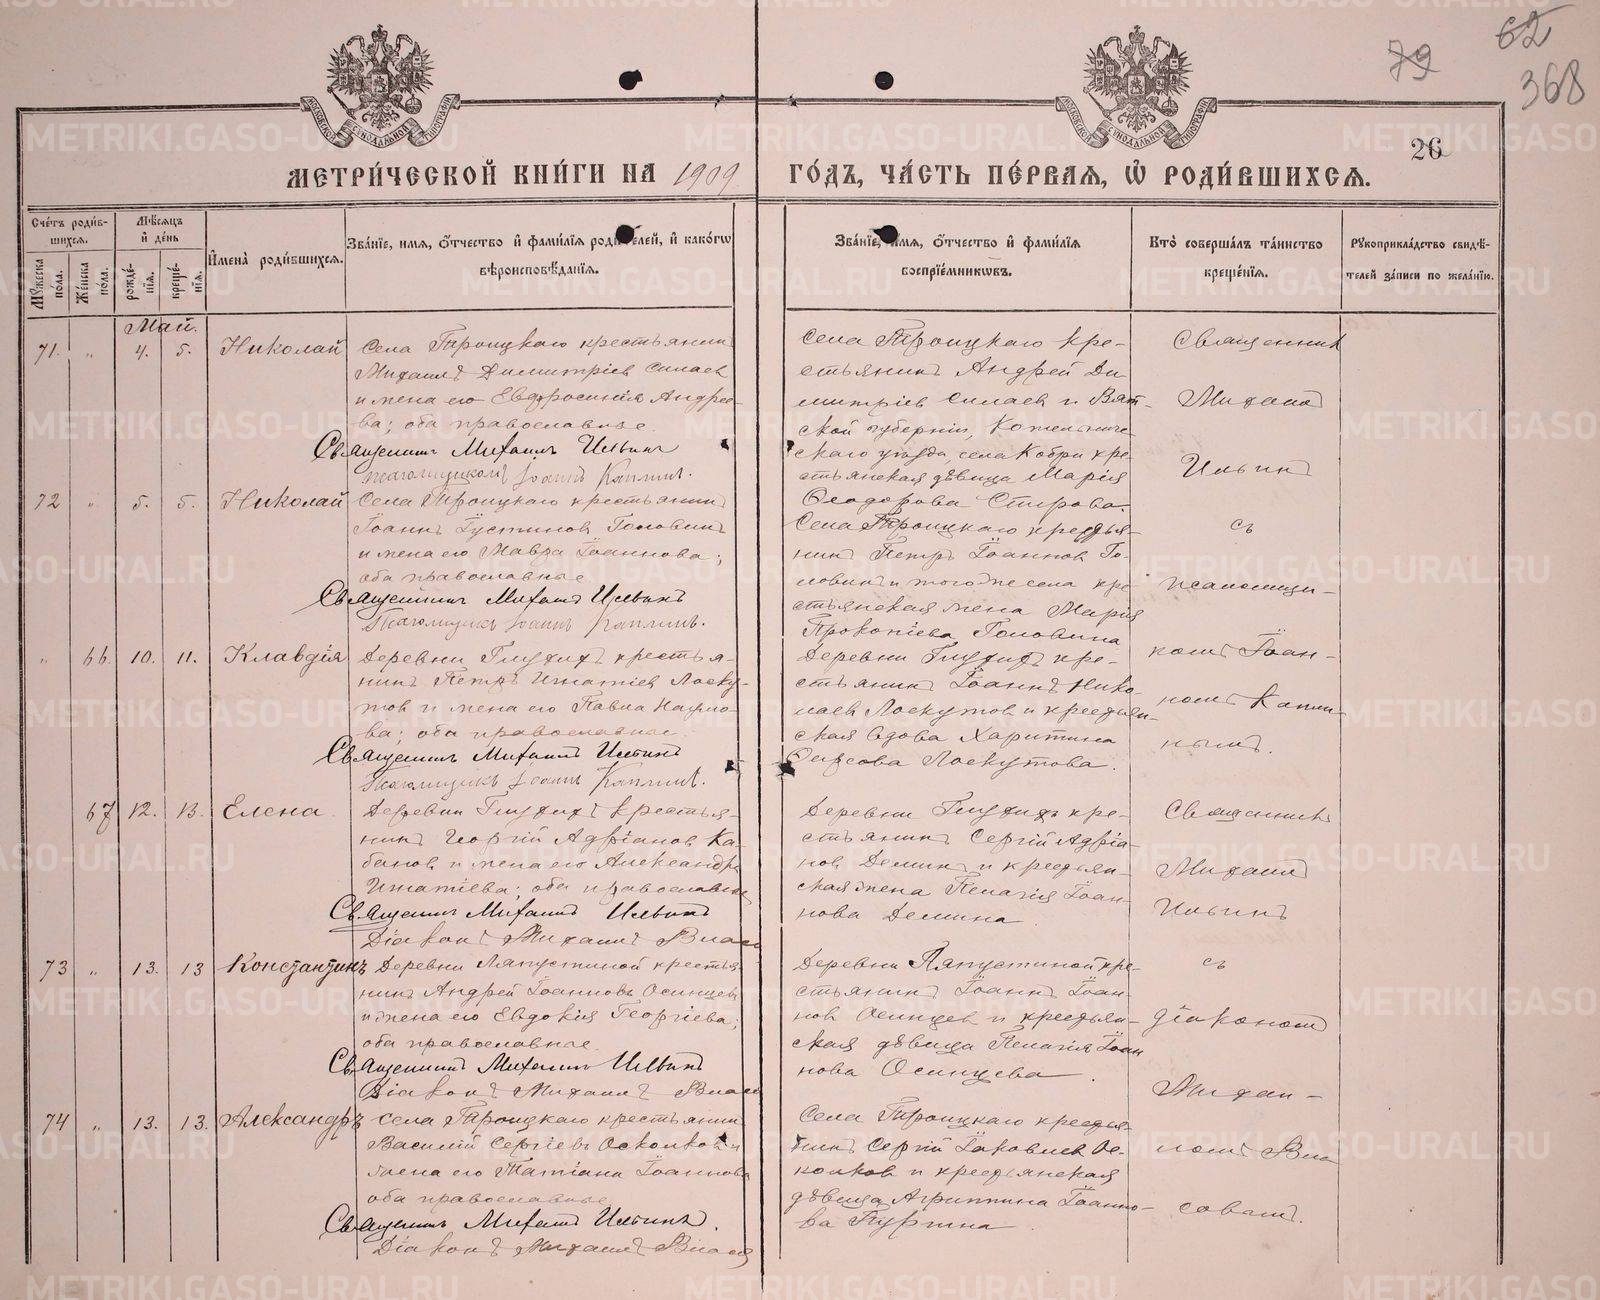 79
62
368
26
МОСКОВСКОЙ СѴНОДАЛЬНОЙ ТИПОГРАФІИ
МОСКОВСКОЙ СѴНОДАЛЬНОЙ ТИПОГРАФІИ
МЕТРИ́ЧЕСКОЙ КНИ́ГИ НА 1909 ГО́ДЪ, ЧА́СТЬ ПЕ́РВАЯ, Ѡ҆ РОДИ́ВШИХСЯ.
Сче́тъ роди́в-
шихся.
Мꙋ́жеска по́ла.
Же́нска по́ла.
Мѣ́сяцъ и҆ де́нь
рожде́-
нія.
креще́-
нія.
И҆мена̀ роди́вшихся.
Зва́ніе, и҆мя, ѻ҆́тчество и҆ фами́лія роди́телей, и҆ како́гѡ
вѣроисповѣ́данія.
Зва́ніе, и҆мя, ѻ҆́тчество и҆ фами́лія
воспріе́мникѡвъ.
Кто̀ соверша́лъ та́инство
креще́нія.
Рꙋкоприкла́дство свидѣ́-
телей за́писи по жела́нію.
Май.
71. „ 4. 5. Николай
Села Троицкаго крестьянин
Михаилъ Димитріев Силаев
и жена его Евфросинія Андрее-
ва; оба православные.
Священникъ Михаилъ Ильинъ
Псаломщикъ Іоаннъ Каплинъ.
Села Троицкаго кре-
стьянинъ Андрей Ди
митріев Силаев и Вят-
ской губерніи, Котельниче-
скаго уѣзда села Кобри кре
стьянская дѣвица Марія
Ѳеодорова Спирова.
Священникъ
Михаилъ
Ильинъ
72 „ 5. 5. Николай
Села Троицкаго крестьянин
Іоаннъ Іустинов Головин
и жена его Мавра Іоаннова;
оба православные.
Священникъ Михаилъ Ильинъ
Псаломщикъ Іоаннъ Каплинъ.
Села Троицкаго крестья-
нинъ Петръ Іоаннов Го-
ловин и того же села кре
стьянская жена Марія
Прокопіева Головина
съ
псаломщи-
комъ Іоан-
номъ Капли-
нымъ.
„ 66. 10. 11. Клавдія
Деревни Глухихъ крестья-
нинъ Петръ Игнатіев Лоску-
тов и жена его Павла Наумо-
ва; оба православные.
Священникъ Михаилъ Ильинъ
Псаломщикъ Іоаннъ Каплинъ.
Деревни Глухихъ кре-
стьянинъ Іоаннъ Нико-
лаев Лоскутов и крестьян-
ская вдова Харитина
Лоскутова.
67 12. 13. Елена
Деревни Глухихъ крестья-
нинъ Георгій Адріанов Ка-
банов и жена его Александра
Игнатіева; оба православные
Священникъ Михаилъ Ильинъ
Діаконъ Михаилъ Власо
Деревни Глухихъ кре-
стьянинъ Сергій Адріа-
нов Демин и крестьян-
ская жена Пелагія Іоан-
нова Демина
Священникъ
Михаилъ
Ильинъ
73 „ 13. 13 Константинъ
Деревни Ляпустиной крестья-
нинъ Андрей Іоанновъ Осинцев
и жена его Евдокія Георгіева;
оба православные.
Священникъ Михаилъ Ильинъ
Діаконъ Михаилъ Власо
Деревни Ляпустиной кре-
стьянинъ Іоаннъ Іоан-
нов Осинцев и крестьян-
ская дѣвица Пелагія Іоан
нова Осинцева.
съ
діакономъ
Михаи-
ломъ Вла
74 „ 13. 13. Александръ
Села Троицкаго крестьянин
Василій Сергіевъ Осколков и
жена его Татіана Іоаннова
оба православные,
Священникъ Михаилъ Ильинъ.
Діаконъ Михаилъ Власо
Села Троицкаго крестья
нинъ Сергій Іаковлев Ос-
колков и крестьянская
дѣвица Агриппина Іоанно-
ва
совымъ.
METRIKI.GASO-URAL.RU